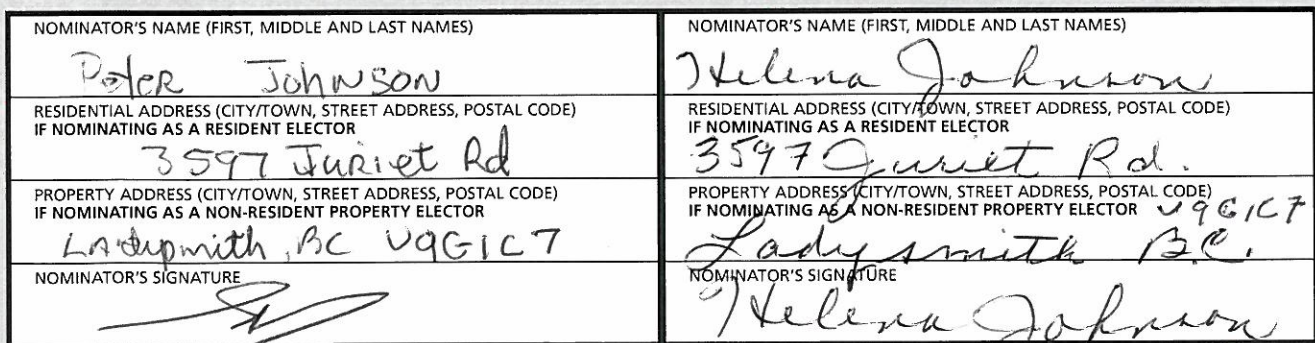 NOMINATOR'S NAME (FIRST, MIDDLE AND LAST NAMES)
Peter Johnson
RESIDENTIAL ADDRESS (CITY/TOWN, STREET ADDRESS, POSTAL CODE)
IF NOMINATING AS A RESIDENT ELECTOR
3597 Juriet Rd
PROPERTY ADDRESS (CITY/TOWN, STREET ADDRESS, POSTAL CODE)
IF NOMINATING AS A NON-RESIDENT PROPERTY ELECTOR
Ladysmith, BC V9G1C7
NOMINATOR'S SIGNATURE
NOMINATOR'S NAME (FIRST, MIDDLE AND LAST NAMES)
Helena Johnson
RESIDENTIAL ADDRESS (CITY/TOWN, STREET ADDRESS, POSTAL CODE)
IF NOMINATING AS A RESIDENT ELECTOR
3597 Juriet Rd.
PROPERTY ADDRESS (CITY/TOWN, STREET ADDRESS, POSTAL CODE)
IF NOMINATING AS A NON-RESIDENT PROPERTY ELECTOR V9G1C7
Ladysmith B.C.
NOMINATOR'S SIGNATURE
Helena Johnson